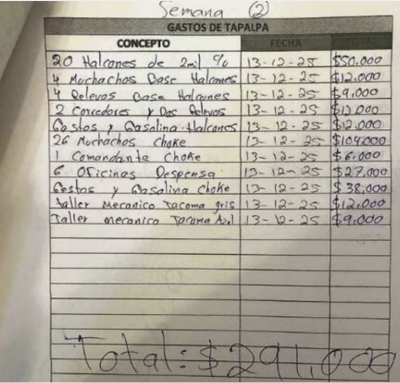 Semana (2)
GASTOS DE TAPALPA
CONCEPTO FECHA
20 Halcones de 2mil % 13-12-25 $50.000
4 Muchachos Base Halcones 13-12-25 $12.000
4 Relevos Base Halcones 13-12-25 $9.000
2 Corredores y Dos Relevos 13-12-25 $12.000
Gastos y Gasolina Halcones 13-12-25 $12.000
26 Muchachos Choke 13-12-25 $104000
1 Comandante Choke 13-12-25 $6.000
6 Oficinas Despensa 13-12-25 $27.000
Gastos y Gasolina Choke 13-12-25 $38,000
Taller Mecanico Tacoma gris 13-12-25 $12,000
Taller mecanico Tacoma Azul 13-12-25 $9.000
Total: $291,000